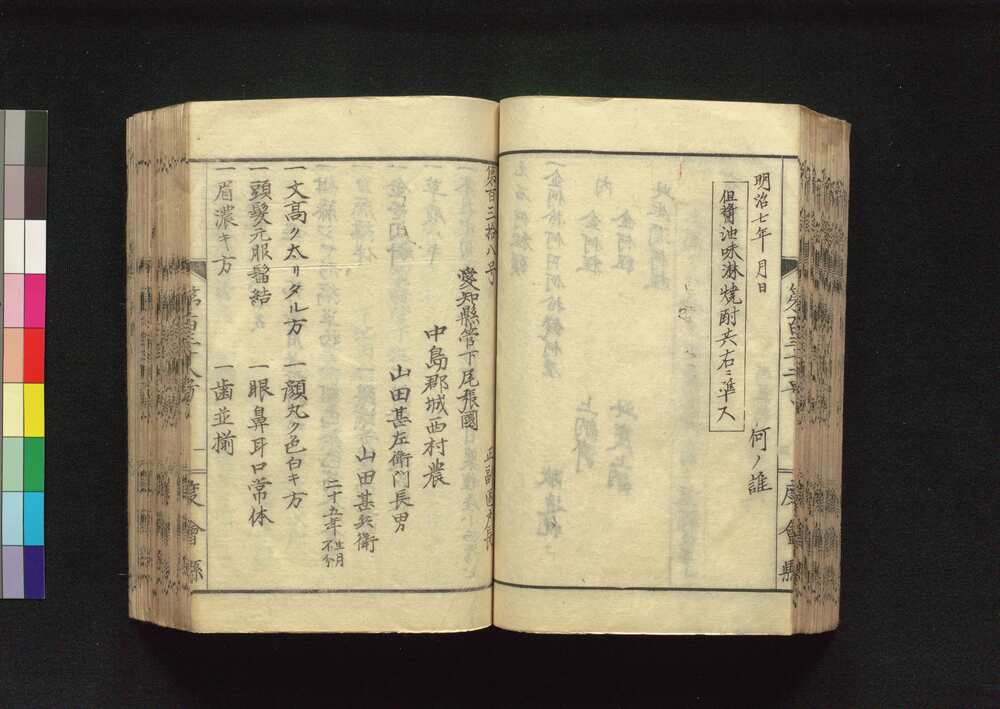 明治七年 月日
何ノ誰
一但醬油味淋焼酎共右ニ準ス
度會縣
第百三拾八号
正副區戸長
愛知縣管下尾張國
中島郡城西村農
山田甚左衛門長男
山田甚兵衛
二十五年 生月不分
一文高ク太リタル方 一顔丸ク色白キ方
一頭髪元服髷結 一眼鼻耳口常体
一眉濃キ方 一歯並揃
度會縣